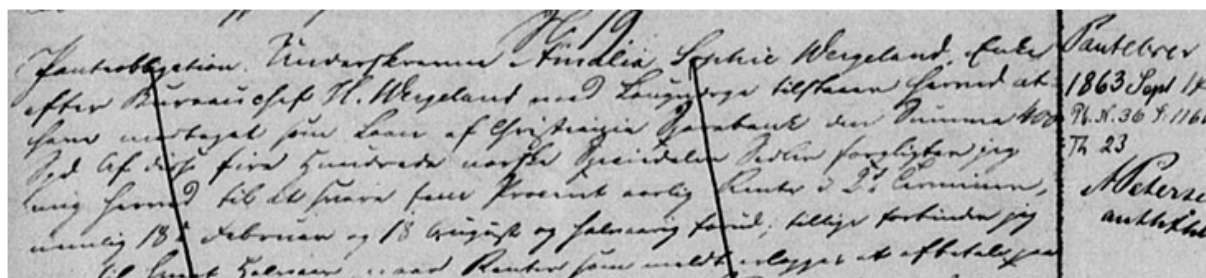 No 19
Panteobligation. Underskrevne Amalia Sophie Wergeland, Enke
efter Bureauchef H. Wergeland med Laugværge tilstaaer herved at
have modtaget som Laan af Christiania Sparebank den Summa 400
Spd Af disse fire Hundrede norske Speciedaler Sedler forpligter jeg
mig herved til at svare fem Procent aarlig Rente i 2de Terminer,
nemlig 18de Februar og 18 August og halvaarig forud; tillige forbinder jeg
til hvert Halvaar naar Renten som meldt erlægges at afbetale paa
Pantebrev
1863 Sept 14
Pb. N. 36 F. 116
Th 23
A Peterse